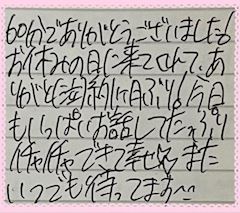 60分でありがとうございました!
お休みの日に来てくれて、あ
りがとう約1ヶ月ぶり!今日
もいっぱいお話してたっぷり
イチャイチャできて幸せまた
いつでも待ってます